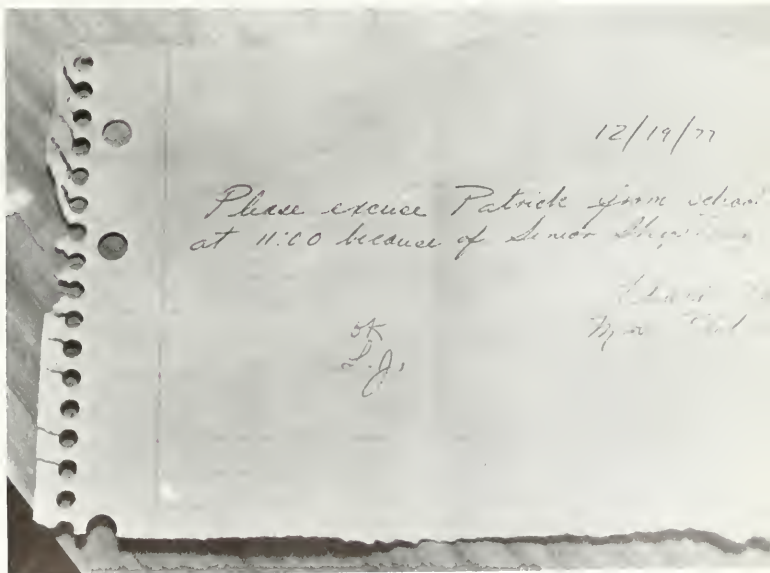 12/19/77
Please excuse Patrick from school
at 11:00 because of Senior
Mrs.
OK
L.J.